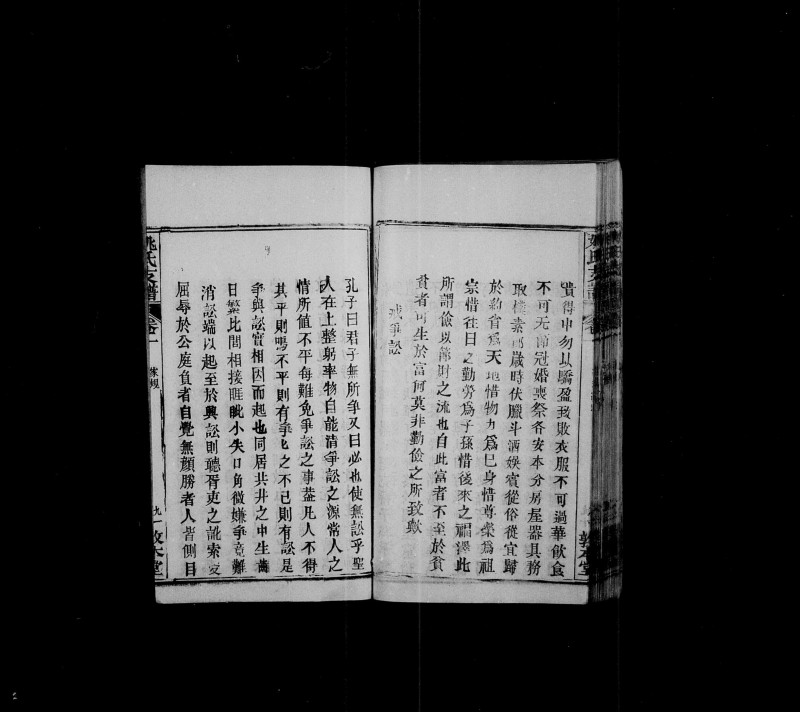 貴得中勿以驕盈致敗衣服不可過華飲食
不可无節冠婚喪祭各安本分房屋器具務
取樸素卽歲時伏臘斗酒娛賓從俗從宜歸
於約省爲天地惜物力爲巳身惜尊榮爲祖
宗惜往日之勤勞爲子孫惜後來之福澤此
所謂儉以節財之流也自此富者不至於貧
貧者可生於富何莫非勤儉之所致歟
戒爭訟
孔子曰君子無所爭又曰必也使無訟乎聖
人在上整躬率物自能清爭訟之源常人之
情所值不平每難免爭訟之事蓋凡人不得
其平則鳴不平則有爭爭之不已則有訟是
爭與訟實相因而起也同居共井之中生齒
日繁比閭相接睚眦小失口角微嫌爭竟難
消訟端以起至於興訟則聽胥吏之訛索受
屈辱於公庭負者自覺無顏勝者人皆側目
姚氏支譜
卷一
家規
九
敦本堂